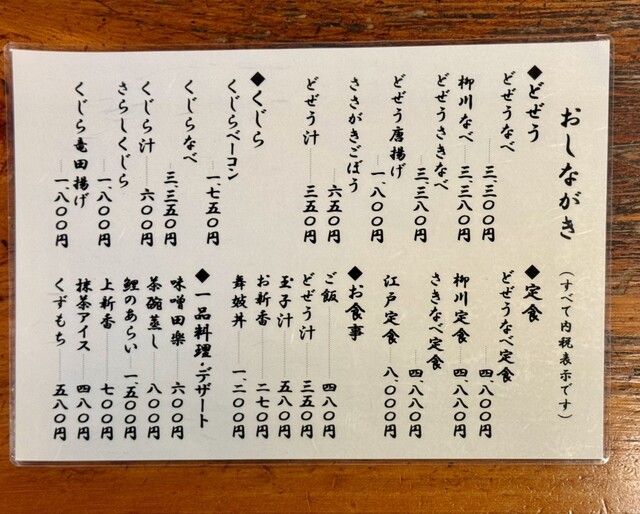 おしながき
(すべて内税表示です)
◆どぜう
どぜうなべ 三、三〇〇円
柳川なべ 三、三八〇円
どぜうさきなべ 三、三八〇円
どぜう唐揚げ 一、八〇〇円
ささがきごぼう 六五〇円
どぜう汁 三五〇円
◆くじら
くじらベーコン 一、七五〇円
くじらなべ 三、三五〇円
くじら汁 六〇〇円
さらしくじら 一、八〇〇円
くじら竜田揚げ 一、八〇〇円
◆定食
どぜうなべ定食 四、八〇〇円
柳川定食 四、八八〇円
さきなべ定食 四、八八〇円
江戸定食 八、〇〇〇円
◆お食事
ご飯 四八〇円
どぜう汁 三五〇円
玉子汁 五八〇円
お新香 二七〇円
舞妓丼 一、二〇〇円
◆一品料理・デザート
味噌田楽 六〇〇円
茶碗蒸し 八〇〇円
鯉のあらい 一、五〇〇円
上新香 七〇〇円
抹茶アイス 四八〇円
くずもち 五八〇円